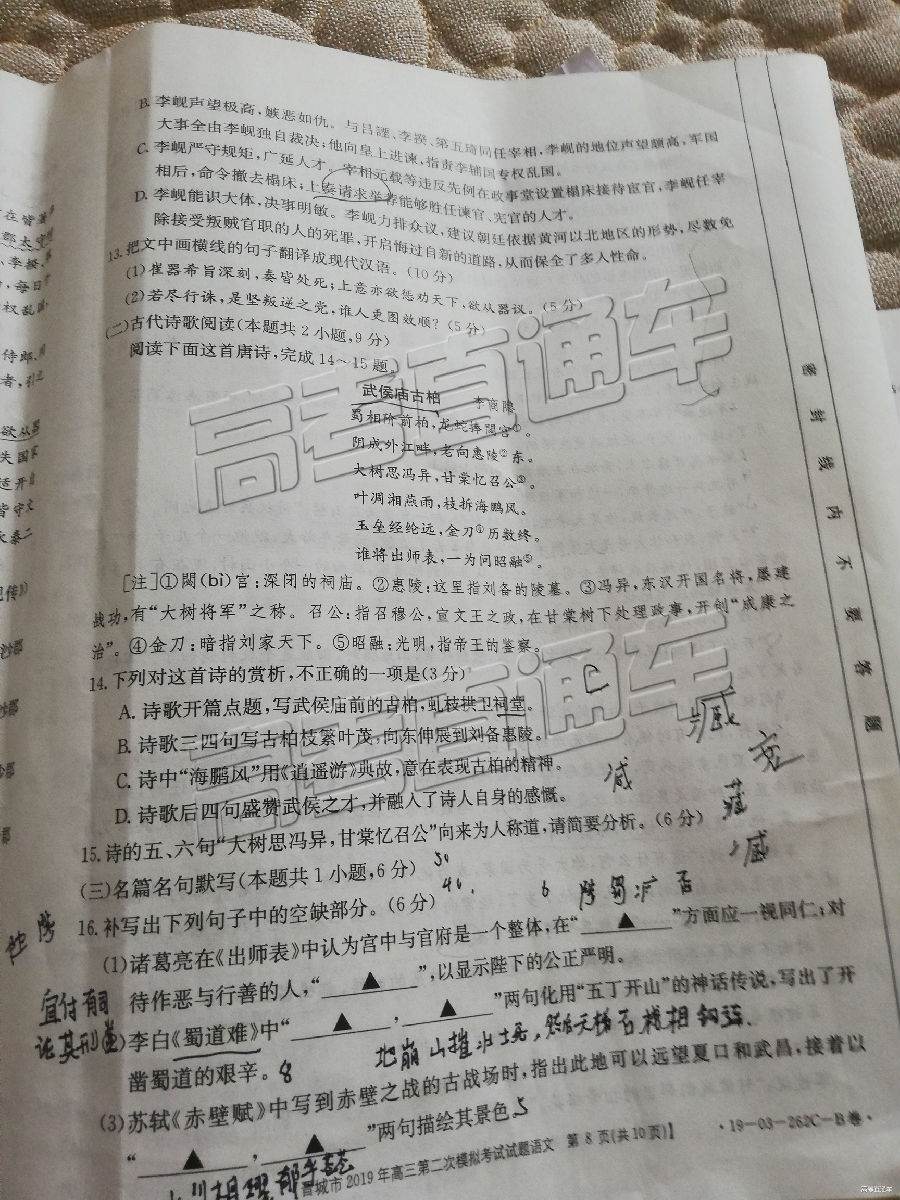 B. 李岘声望极高，嫉恶如仇。与吕諲、李揆、第五琦同任宰相，李岘的地位声望颇高，军国
大事全由李岘独自裁决；他向皇上进谏，指责李辅国专权乱国。
C. 李岘严守规矩，广延人才。宰相元载等违反先例在政事堂设置榻床接待宦官，李岘任宰
相后，命令撤去榻床；上奏请求举荐能够胜任谏官、宪官的人才。
D. 李岘能识大体，决事明敏。李岘力排众议，建议朝廷依据黄河以北地区的形势，尽数免
除接受叛贼官职的人的死罪，开启悔过自新的道路，从而保全了多人性命。
13. 把文中画横线的句子翻译成现代汉语。（10分）
(1)崔器希旨深刻，奏皆处死；上意亦欲惩劝天下，欲从器议。（5分）
(2)若尽行诛，是坚叛逆之党，谁人更图效顺？（5分）
(二)古代诗歌阅读（本题共2小题，9分）
阅读下面这首唐诗，完成14～15题。
武侯庙古柏
李商隐
蜀相阶前柏，龙蛇捧閟宫①。
阴成外江畔，老向惠陵②东。
大树思冯异，甘棠忆召公③。
叶凋湘燕雨，枝拆海鹏风。
玉垒经纶远，金刀④历数终。
谁将出师表，一为问昭融⑤。
[注]①閟(bì)宫：深闭的祠庙。②惠陵：这里指刘备的陵墓。③冯异，东汉开国名将，屡建
战功，有“大树将军”之称。召公：指召穆公，宣文王之政，在甘棠树下处理政事，开创“成康之
治”。④金刀：暗指刘家天下。⑤昭融：光明，指帝王的鉴察。
14. 下列对这首诗的赏析，不正确的一项是（3分） C
A. 诗歌开篇点题，写武侯庙前的古柏，虬枝拱卫祠堂。
B. 诗歌三四句写古柏枝繁叶茂，向东伸展到刘备惠陵。
C. 诗中“海鹏风”用《逍遥游》典故，意在表现古柏的精神。
D. 诗歌后四句盛赞武侯之才，并融入了诗人自身的感慨。
15. 诗的五、六句“大树思冯异，甘棠忆召公”向来为人称道，请简要分析。（6分）
(三)名篇名句默写（本题共1小题，6分）
16. 补写出下列句子中的空缺部分。（6分）
(1)诸葛亮在《出师表》中认为宫中与官府是一个整体，在“▲”方面应一视同仁；对
待作恶与行善的人，“▲”，以显示陛下的公正严明。
宜付有司
(2)李白《蜀道难》中“▲，▲”两句化用“五丁开山”的神话传说，写出了开
凿蜀道的艰辛。 8
地崩山摧壮士死，然后天梯石栈相钩连
(3)苏轼《赤壁赋》中写到赤壁之战的古战场时，指出此地可以远望夏口和武昌，接着以
“▲，▲”两句描绘其景色 5
晋城市2019年高三第二次模拟考试试题语文 第8页(共10页)】
·19-03-262C-B卷·
密封线内不要答题
高考直通车
高考直通车